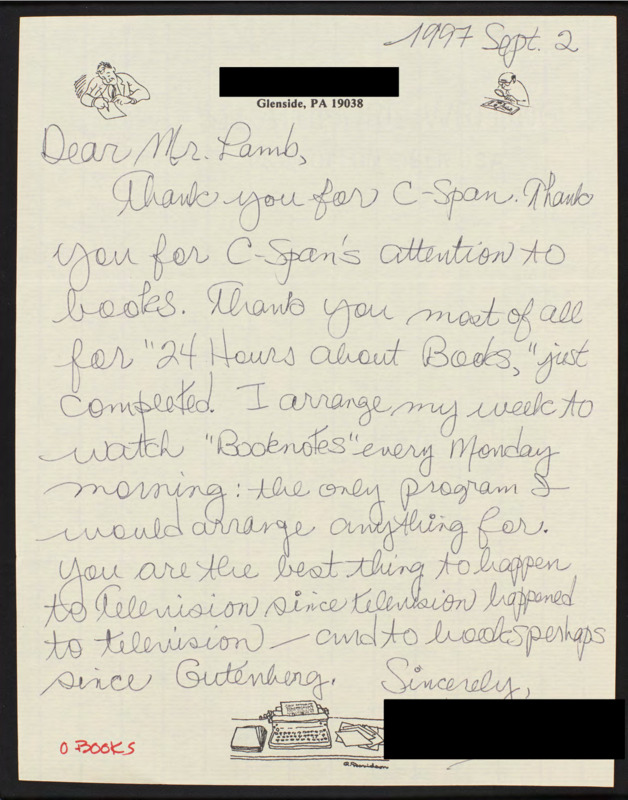 1997 Sept. 2
Glenside, PA 19038
Dear Mr. Lamb,
Thank you for C-Span. Thank
you for C-Span's attention to
books. Thank you most of all
for "24 Hours about Books," just
completed. I arrange my week to
watch "Booknotes" every Monday
morning: the only program I
would arrange anything for.
You are the best thing to happen
to television since television happened
to television — and to books perhaps
since Gutenberg. Sincerely,
O BOOKS